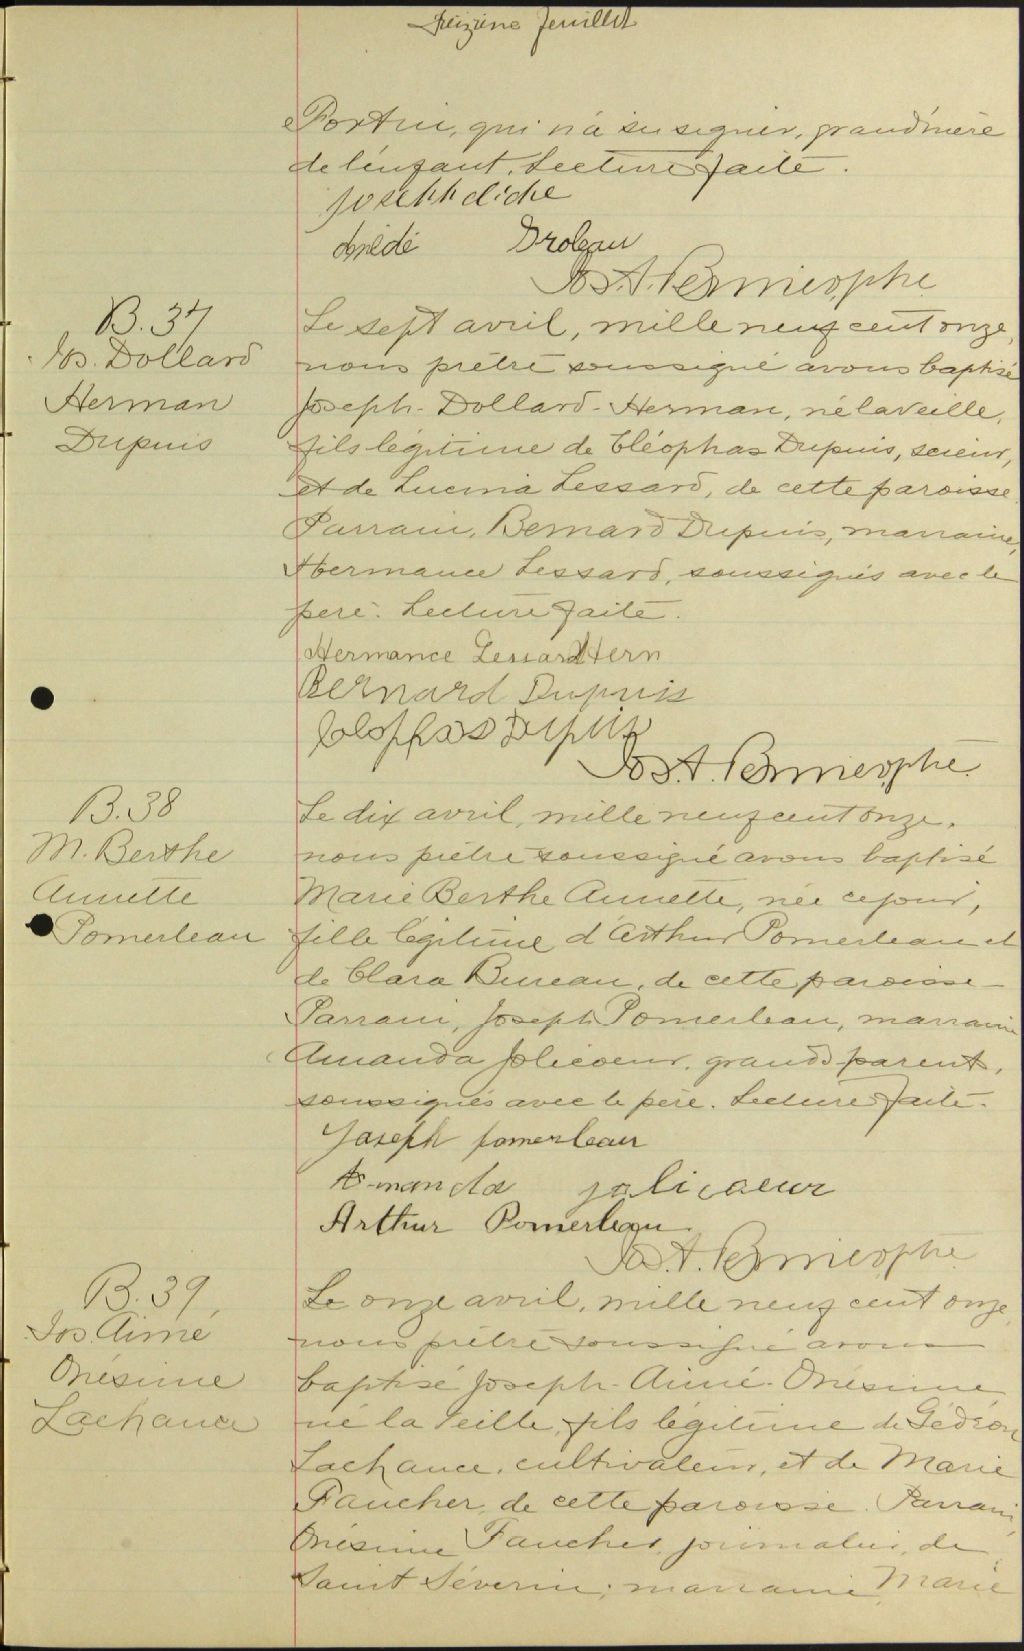 Treizième feuillet
Fortin, qui n'a su signer, grand'mère
de l'enfant. Lecture faite.
Joseph cliche
Groleau
Jos. A. Bernier, ptre
B. 37
Jos. Dollard
Herman
Dupuis
Le sept avril, mille neuf cent onze,
nous prêtre soussigné avons baptisé
Joseph-Dollard-Herman, né la veille,
fils légitime de Cléophas Dupuis, scieur,
et de Lucina Lessard, de cette paroisse.
Parrain, Bernard Dupuis, marraine,
Hermance Lessard, soussignés avec le
père. Lecture faite.
Hermance Lessard
Bernard Dupuis
Cleophas Dupuis
Jos. A. Bernier, ptre
B. 38
M. Berthe
Annette
Pomerleau
Le dix avril, mille neuf cent onze,
nous prêtre soussigné avons baptisé
Marie Berthe Annette, née ce jour,
fille légitime d'Arthur Pomerleau et
de Clara Bureau, de cette paroisse
Parrain, Joseph Pomerleau, marraine
Amanda Jolicoeur, grands-parents,
soussignés avec le père. Lecture faite.
Joseph pomerleau
Amanda jolicoeur
Arthur Pomerleau
Jos. A. Bernier, ptre
B. 39
Jos. Aimé
Onésime
Lachance
Le onze avril, mille neuf cent onze,
nous prêtre soussigné avons
baptisé Joseph-Aimé-Onésime
né la veille, fils légitime de Gédéon
Lachance, cultivateur, et de Marie
Faucher, de cette paroisse. Parrain,
Onésime Faucher, journalier, de
Saint Séverin; marraine, Marie